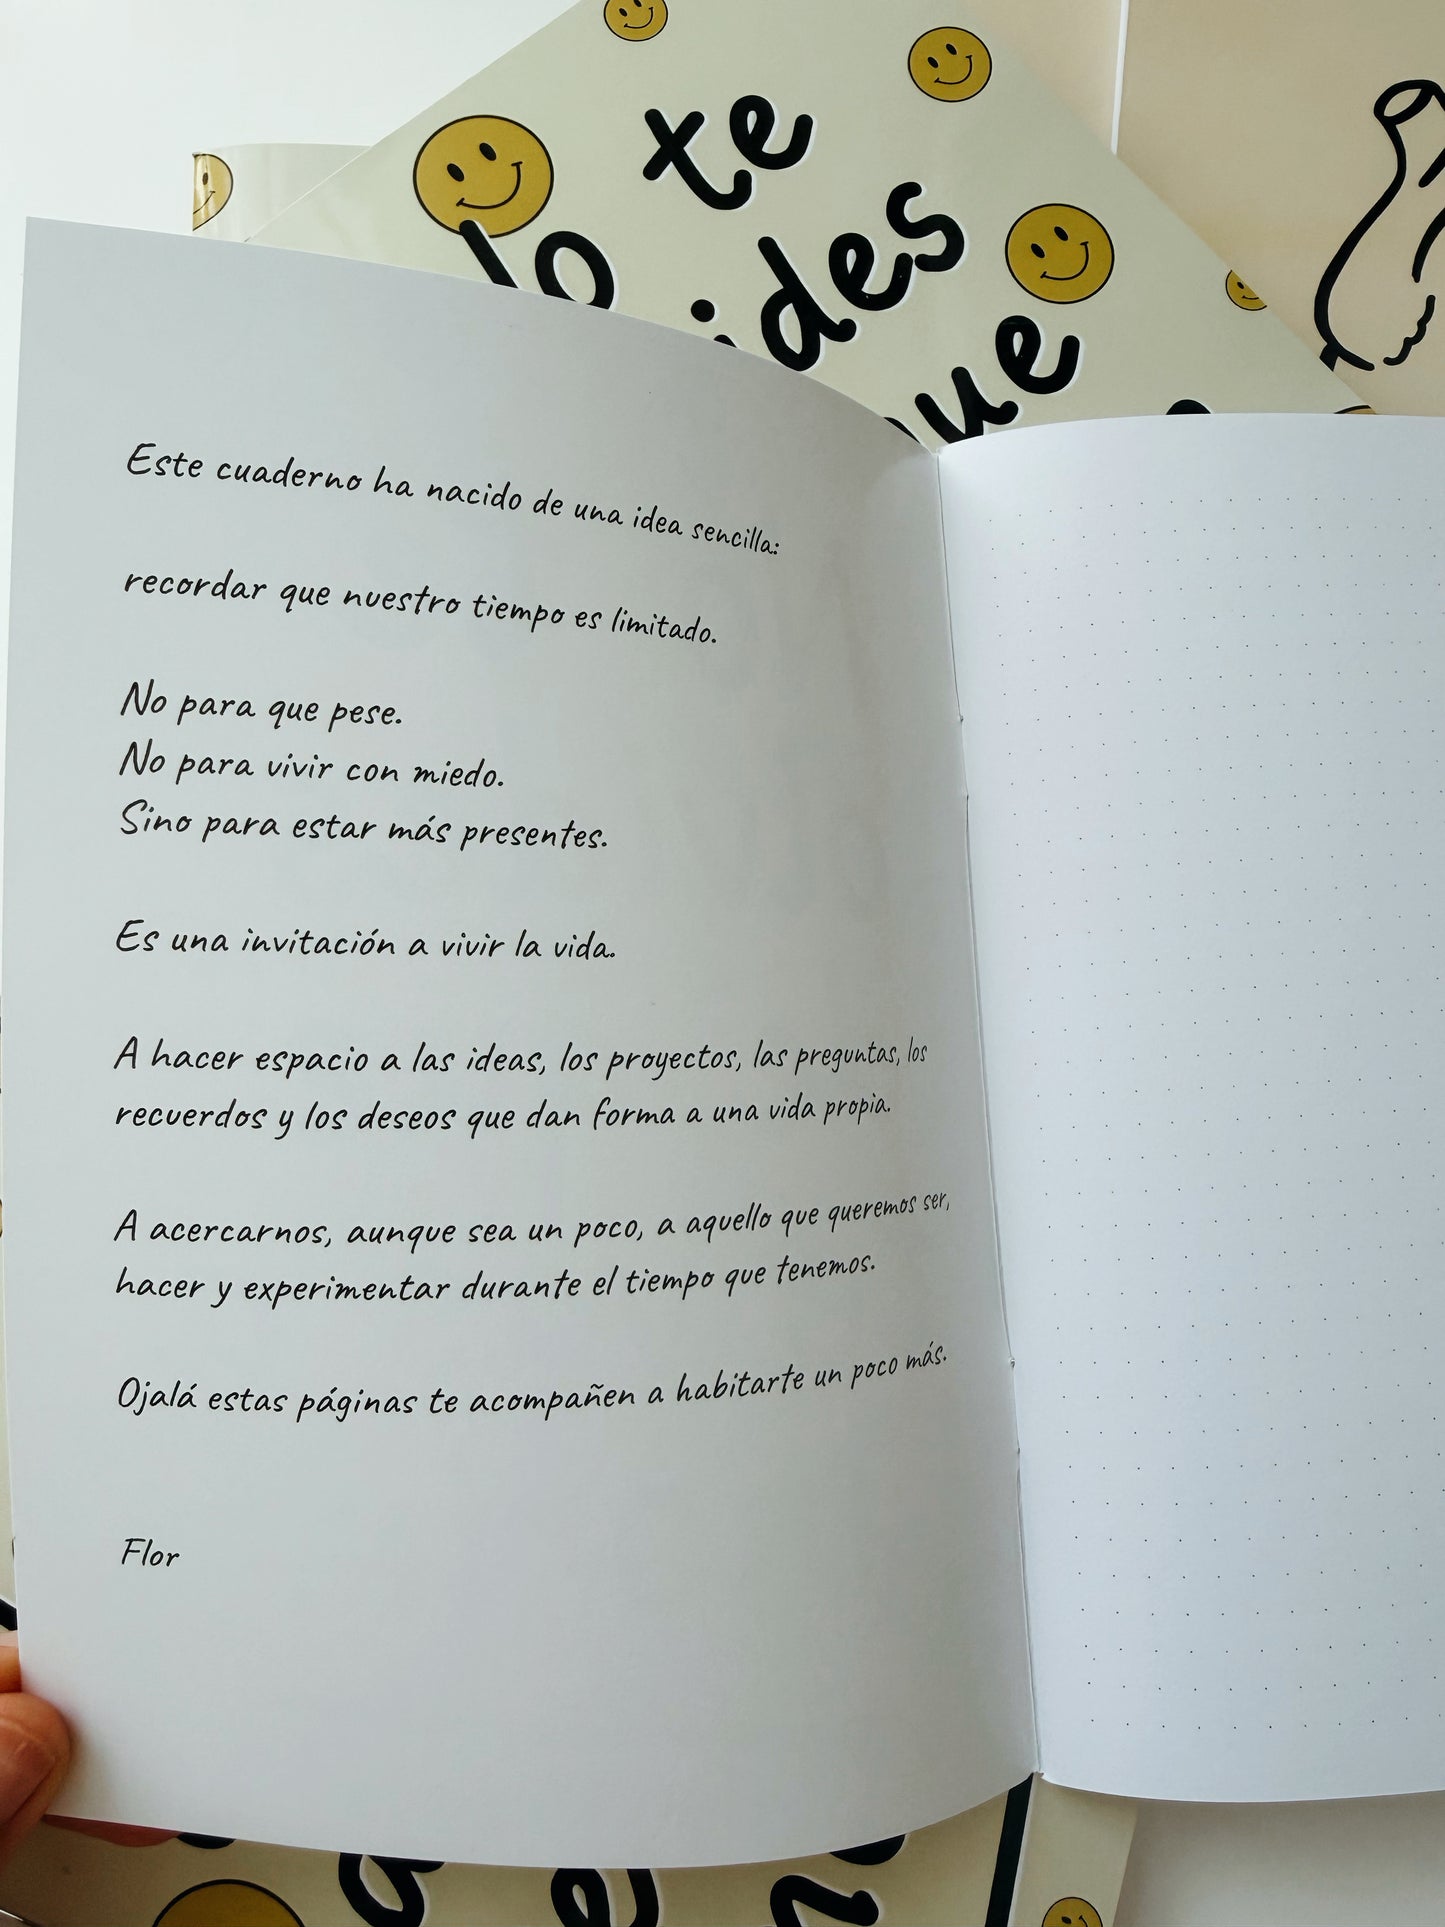 te
lo
ides
que
Este cuaderno ha nacido de una idea sencilla:
recordar que nuestro tiempo es limitado.
No para que pese.
No para vivir con miedo.
Sino para estar más presentes.
Es una invitación a vivir la vida.
A hacer espacio a las ideas, los proyectos, las preguntas, los
recuerdos y los deseos que dan forma a una vida propia.
A acercarnos, aunque sea un poco, a aquello que queremos ser,
hacer y experimentar durante el tiempo que tenemos.
Ojalá estas páginas te acompañen a habitarte un poco más.
Flor